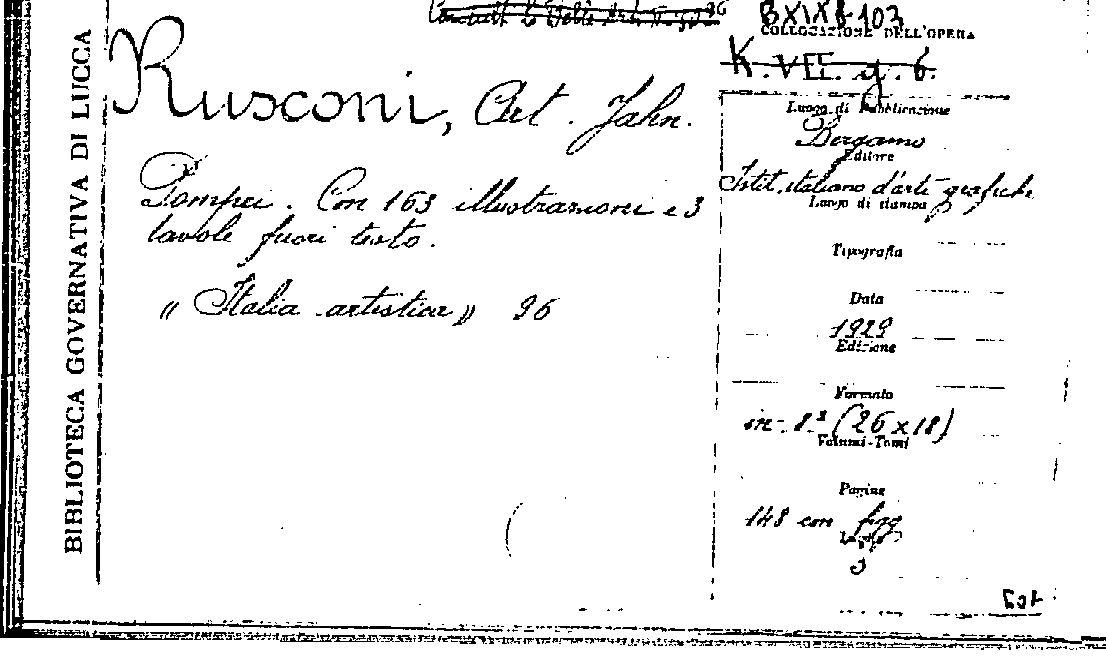 BIBLIOTECA GOVERNATIVA DI LUCCA
Rusconi, Art. Jahn.
Pompei. Con 163 illustrazioni e 3
tavole fuori testo.
"Italia artistica" 96
BXIXf-103
COLLOCAZIONE DELL'OPERA
K. VII. g. 6.
Luogo di Pubblicazione
Bergamo
Editore
Istit. italiano d'arti grafiche
Luogo di stampa
Tipografia
Data
1929
Edizione
Formato
in-8º (26 x 18)
Volumi-Tomi
Pagine
148 con figg
3